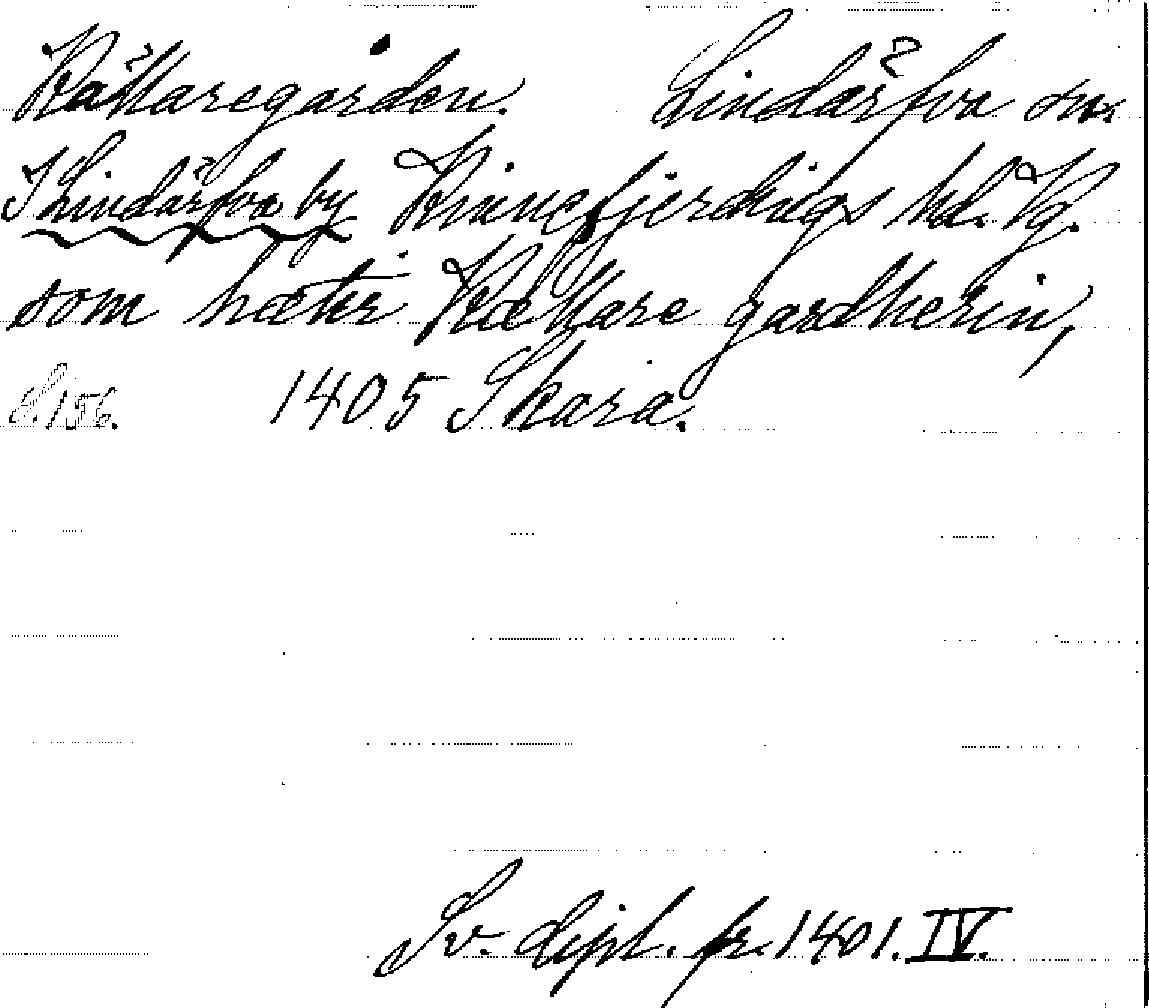 Rättaregården. Lindärfva sn.
I Lindärfva by Kinnefjerdings hd. Vg.
som hæter Rættare gardherin,
S. 156. 1405 Skara.
Sv. dipl. fr. 1401. IV.